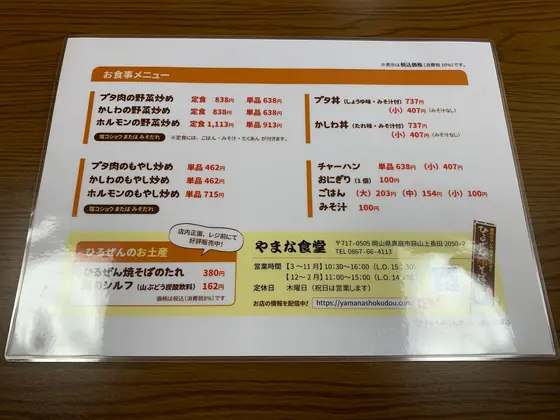 ※表示は税込価格(消費税10%)です。
お食事メニュー
ブタ肉の野菜炒め 定食 838円 単品 638円
かしわの野菜炒め 定食 838円 単品 638円
ホルモンの野菜炒め 定食 1,113円 単品 913円
塩コショウ または みそだれ ※定食には、ごはん・みそ汁・たくあん が付きます。
ブタ肉のもやし炒め 単品 462円
かしわのもやし炒め 単品 462円
ホルモンのもやし炒め 単品 715円
塩コショウ または みそだれ
ブタ丼 (しょうゆ味・みそ汁付) 737円
(小) 407円 (みそ汁なし)
かしわ丼 (たれ味・みそ汁付) 737円
(小) 407円 (みそ汁なし)
チャーハン 単品 638円 (小) 407円
おにぎり (1個) 100円
ごはん (大) 203円 (中) 154円 (小) 100円
みそ汁 100円
店内正面、レジ前にて
好評販売中!
ひるぜんのお土産
ひるぜん焼そばのたれ 380円
のシルフ (山ぶどう炭酸飲料) 162円
価格は税込(消費税8%)です
やまな食堂
〒717-0505 岡山県真庭市蒜山上長田 2050-
TEL 0867-66-4113
営業時間 【3〜11月】10:30〜16:00 (L.O. 15:30)
【12〜2月】11:00〜15:00 (L.O. 14
定休日 木曜日(祝日は営業します)
お店の情報を配信中! https://yamanashokudou.com